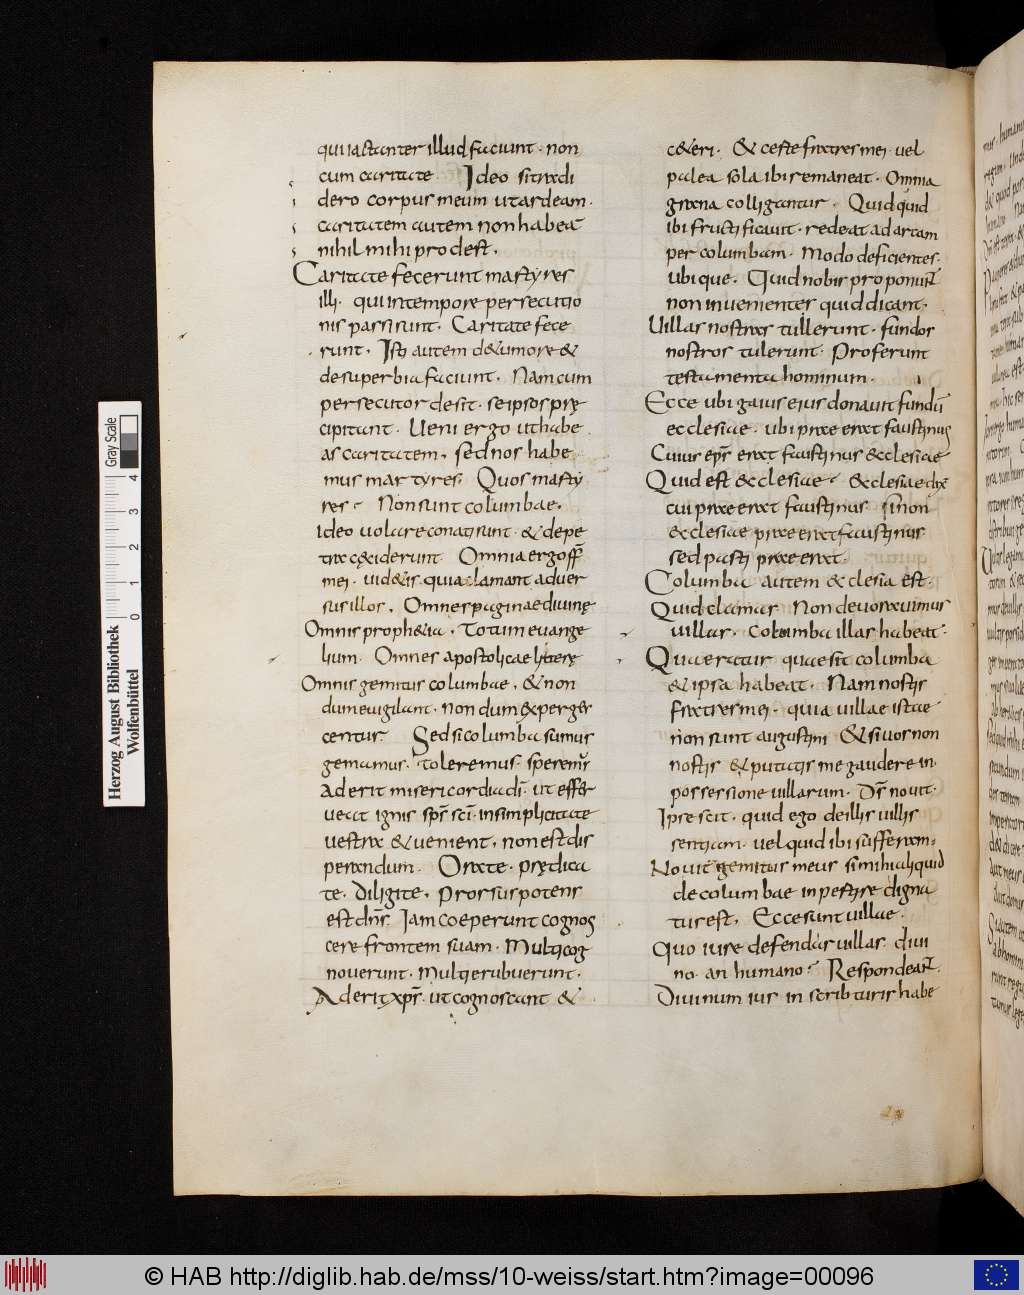 qui iactanter illud faciunt · non
cum caritate · Ideo si tradi
dero corpus meum ut ardeam ·
caritatem autem non habeā
nihil mihi prodest ·
Caritate fecerunt martyres
illi · qui in tempore persecutio
nis passi sunt · Caritate fece
runt · Isti autem de tumore &
de superbia faciunt · Nam cum
persecutor desit · se ipsos prę
cipitant · Ueni ergo ut habe
as caritatem · sed nos habe
mus martyres · Quos marty
res · Non sunt columbae ·
Ideo uolare conati sunt · & de pe
tra cęciderunt · Omnia ergo ff̄
mei · uid&is quia clamant aduer
sus illos · Omnes paginae diuinę
Omnis proph&ia · Totum euange
lium · Omnes apostolicae litterę
Omnis gemitus columbae · & non
dum euigilant · non dum experges
centur · Sed si columba sumus
gemamus · toleremus · speremus
Aderit misericordia dī · ut effer
ueat ignis sp̄s sc̄i in simplicitate
uestra & uenient · non est dis
perandum · Orate · prędica
te · Diligite · Prorsus potens
est dn̄s · Iam coeperunt cognos
cere frontem suam · Multi cog
nouerunt · Multi erubuerunt ·
Aderit xp̄s · ut cognoscant &
c&eri · & certe fratres mei · uel
palea sola ibi remaneat · Omnia
grana colligantur · Quidquid
ibi fructificauit · redeat ad arcam
per columbam · Modo deficientes
ubique · Quid nobis proponunt
non inuenientes quid dicant ·
Uillas nostras tullerunt · fundos
nostros tulerunt · Proferunt
testamenta hominum ·
Ecce ubi gaius eius donauit fundū
ecclesiae · ubi praeerat faustinus
Cuius ep̄s erat faustinus &cclesiae
Quid est &cclesiae · &cclesiae
cui praeerat faustinus · si non
&cclesiae praeerat faustinus
sed parti praeerat ·
Columba autem &cclesia est ·
Quid clamas Non deuorauimus
uillas · Columba illas habeat ·
Quaeratur quae sit columba
& ipsa habeat · Nam nostis
fratres mei · quia uillae istae
non sunt augustini & si uos non
nostis & putatis me gaudere in
possessione uillarum · Ds̄ nouit ·
Ipse scit · quid ego de illis uillis
sentiam · uel quid ibi sufferam
Nouit gemitus meus si mihi aliquid
de columbae in pertire digna
tus est · Ecce sunt uillae ·
Quo iure defendas uillas diui
no · an humano · Respondeant
Diuinum ius in scribturis habe
Herzog August Bibliothek
Wolfenbüttel
Gray Scale
0 1 2 3 4
© HAB http://diglib.hab.de/mss/10-weiss/start.htm?image=00096